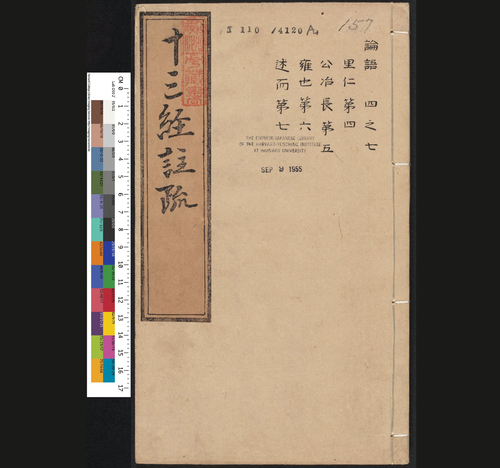 十三經註疏
T 110 /4120 A
157
論語 四之七
里仁第四
公冶長第五
雍也第六
述而第七
THE CHINESE-JAPANESE LIBRARY
OF THE HARVARD-YENCHING INSTITUTE
AT HARVARD UNIVERSITY
SEP 9 1955
CM 0 1 2 3 4 5 6 7 8 9 10 11 12 13 14 15 16 17